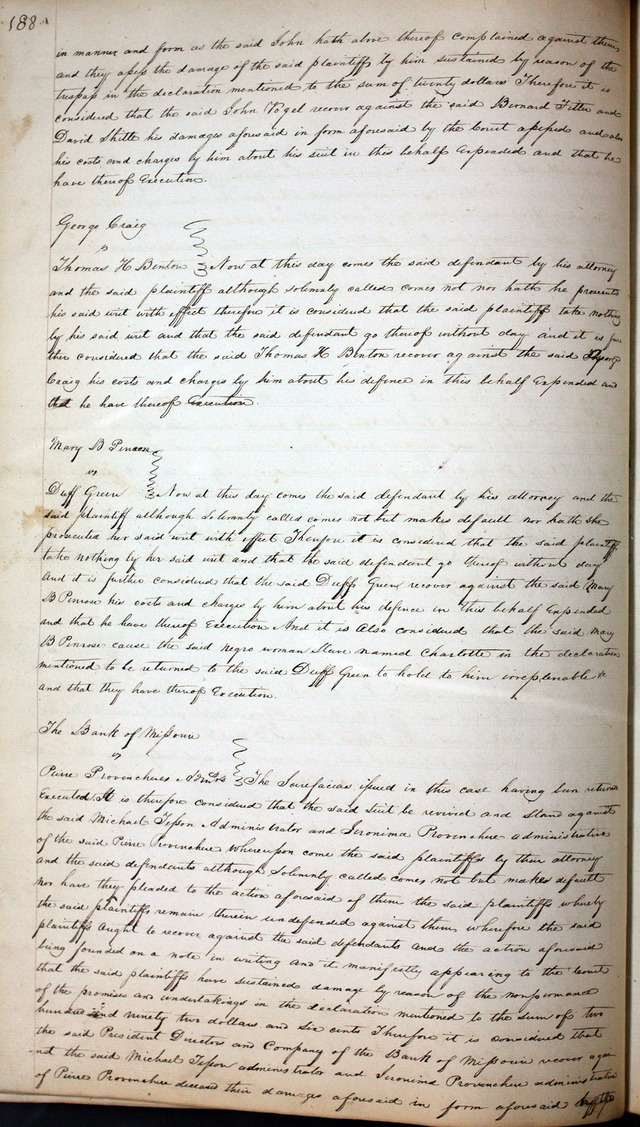 188
in manner and form as the said John hath above thereof complained against them
and they assess the damage of the said plaintiff by him sustained by reason of the
trespass in the declaration mentioned to the sum of twenty dollars Therefore it is
considered that the said John Vogel recover against the said Bernard and
David his damages aforesaid in form aforesaid by the Court assessed and also
his costs and charges by him about his suit in this behalf Expended and that he
have thereof Execution.
George Craig
vs
Thomas H Benton Now at this day comes the said defendant by his attorney
and the said plaintiff although solemnly called comes not nor hath he prosecuted
his said writ with effect therefore it is considered that the said plaintiff take nothing
by his said writ and that the said defendant go thereof without day and it is fur
ther considered that the said Thomas H Benton recover against the said George
Craig his costs and charges by him about his defence in this behalf Expended and
that he have thereof Execution.
Mary B Penrose
vs
Duff Green Now at this day comes the said defendant by his attorney and the
said plaintiff although solemnly called comes not but makes default nor hath she
prosecuted her said writ with effect Therefore it is considered that the said plaintiff
take nothing by her said writ and that the said defendant go thereof without day
And it is further considered that the said Duff Green recover against the said Mary
B Penrose his costs and charges by him about his defence in this behalf Expended
and that he have thereof Execution And it is Also considered that the said Mary
B Penrose cause the said negro woman Slave named Charlotte in the declaration
mentioned to be returned to the said Duff Green to hold to him irreplevable &
and that they have thereof Execution.
The Bank of Missouri
vs
Pierre Provencheres Admrs The Scirefacias issued in this case having been returned
Executed. It is therefore considered that the said suit be revived and Stand against
the said Michael Tesson Administrator and Jeronima Provenchere administratrix
of the said Pierre Provenchere whereupon come the said plaintiffs by their attorney
and the said defendants although solemnly called comes not but makes default
nor have they pleaded to the action aforesaid of them the said plaintiffs whereby
the said plaintiffs remain therein undefended against them, wherefore the said
plaintiffs aught to recover against the said defendants and the action aforesaid
being founded on a note in writing and it manifestly appearing to the Court
that the said plaintiffs have sustained damage by reason of the nonperformance
of the promises and undertakings in the declaration mentioned to the sum of two
hundred and ninety two dollars and six cents Therefore it is considered that
the said President Directors and Company of the Bank of Missouri recover again
st the said Michael Tesson administrator and Jeronima Provenchere administratrix
of Pierre Provenchere deceased their damages aforesaid in form aforesaid